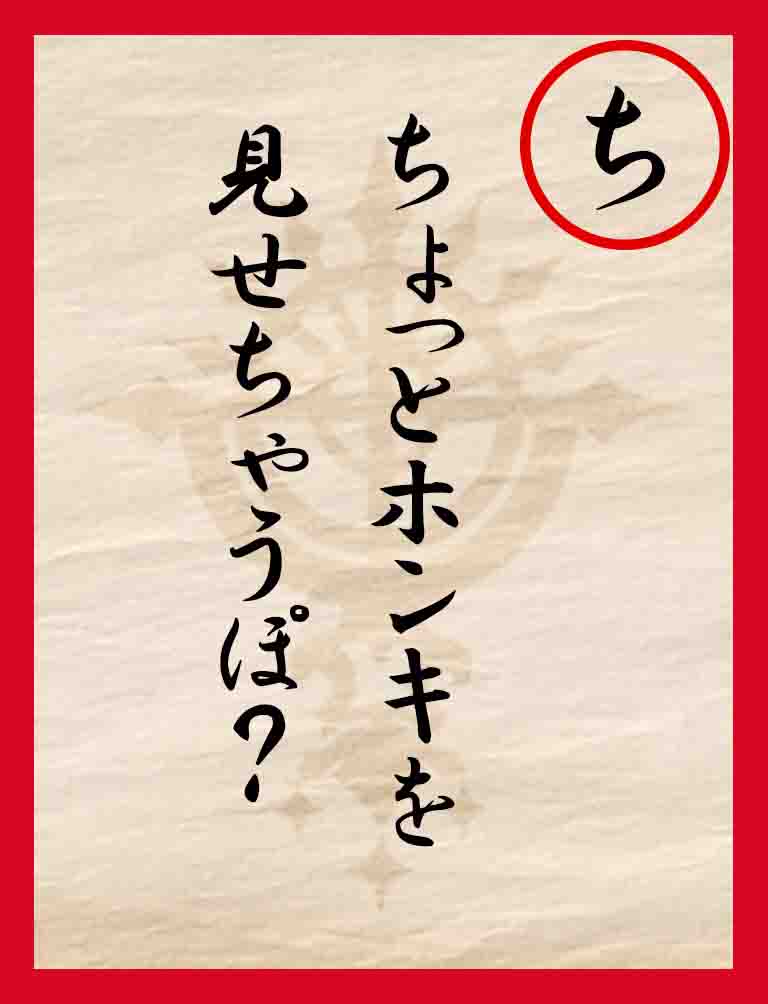 ち
ちょっとホンキを
見せちゃうぽ?